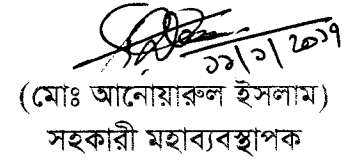 ১১/১/২০১৭
(মোঃ আনোয়ারুল ইসলাম)
সহকারী মহাব্যবস্থাপক